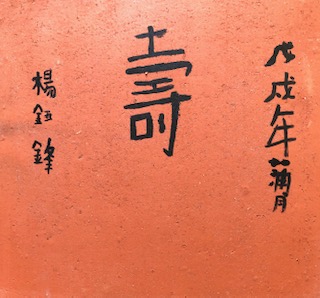 戊戌年蒲月
壽
楊鋒